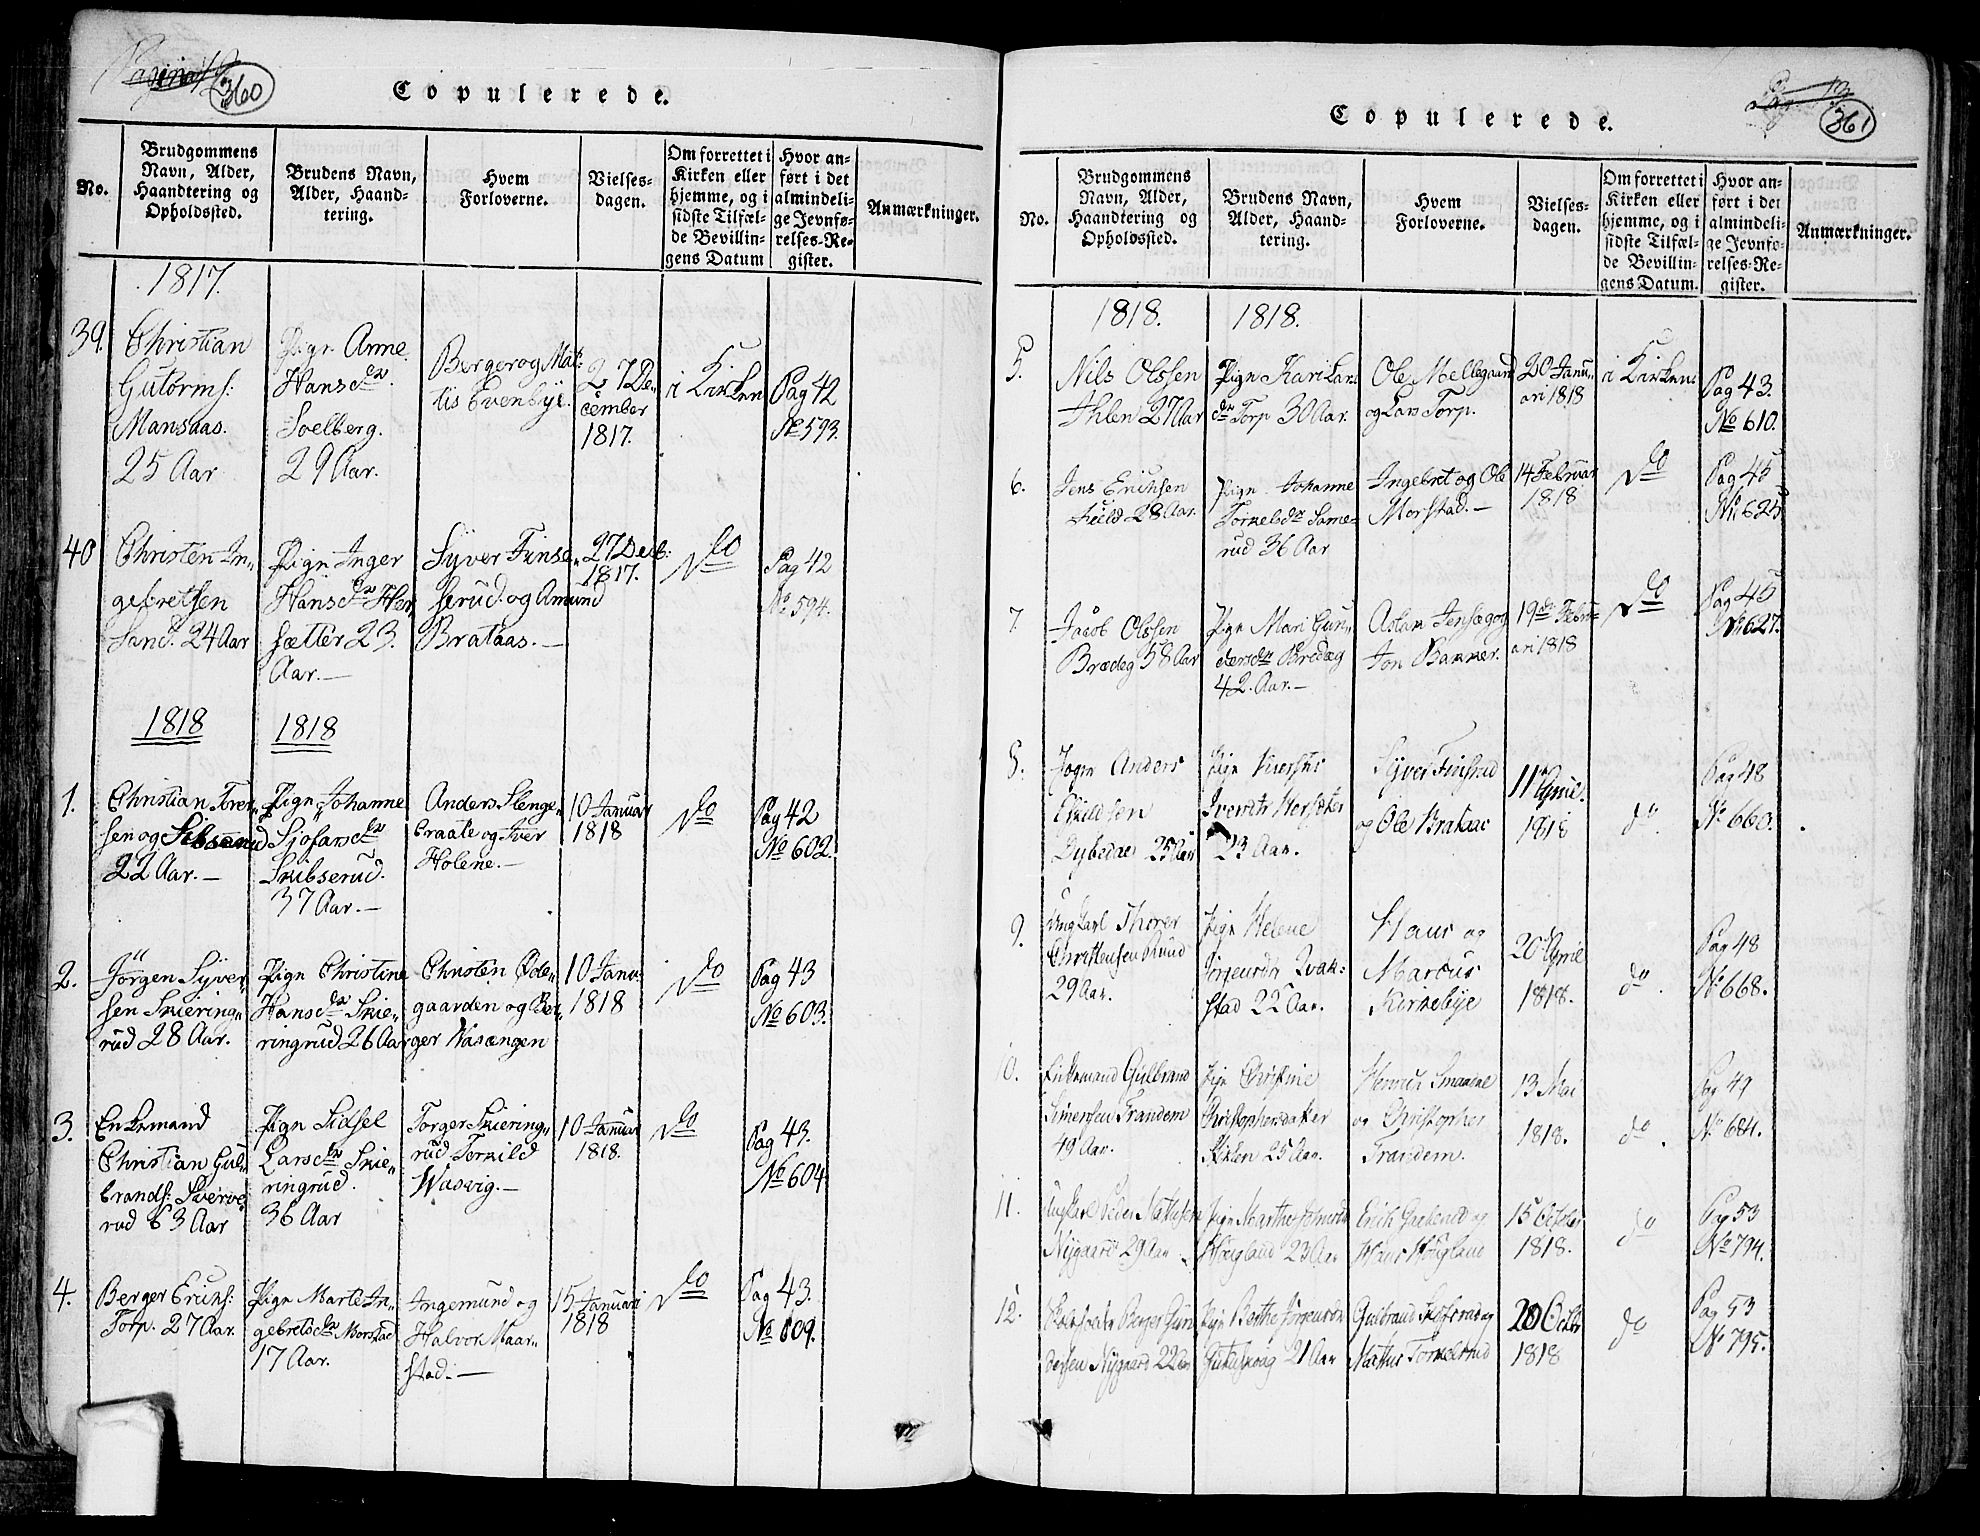 Pagina 12
360
Copulerede.
No.
Brudgommens
Navn, Alder,
Haandtering og
Opholdssted.
Brudens Navn,
Alder, Haand-
tering.
Hvem
Forloverne.
Vielses-
dagen.
Om forrettet i
Kirken eller
hjemme, og i
sidste Tilfæl-
de Bevillin-
gens Datum
Hvor an-
ført i det
almindeli-
ge Jevnfø-
relses-Re-
gister.
Anmærkninger.
1817.
39.
Christian
Gutorms:
Mansaas.
25 Aar
Pign Anne
Hansdr.
Soelberg.
29 Aar.
Berger og Mat-
tis Evenbye.
27 De-
cember
1817.
i Kirken
Pag 42
No 593.
40
Christen In-
gebretsen
Sand. 24 Aar
Pign Inger
Hansdr Her-
sætter 23.
Aar.—
Syver Finse-
serud. og Amund
Brataas.—
27 Decb:
1817.
do
Pag 42
No 594.
1818
1818
1.
Christian Torer-
sen og
22 Aar.—
Pign Johanne
Sjofarsdr
Skibserud.
37 Aar.—
Anders Slenge-
braate og Iver
Holene.—
10 Januar
1818
do
Pag 42
No 602.
2.
Jörgen Syver-
sen Skiering-
rud 28 Aar.
Pign Christine
Hansdr Skie-
ringrud 26 Aar
Christen Øde-
gaarden og Ber-
ger Wasængen
10 Janu:
1818
do
Pag 43
No 603.
3.
Enkemand
Christian Gul-
brands: Sverve-
rud 63 Aar
Pign Sidsel
Larsdr Skie-
ringrud.
36 Aar
Torger Skiering-
rud Torkild
Wasvig.—
10 Januar
1818.
do
Pag 43.
No 604
4.
Berger Ericks:
Torp. 27 Aar.
Pign Marte In-
gebretsdr Morstad
17 Aar.
Ingemund og
Halvor Maar-
stad.—
15 Januari
1818
do
Pag 43.
No 609.
Pag. 13
361
Copulerede.
No.
Brudgommens
Navn, Alder,
Haandtering og
Opholdssted.
Brudens Navn,
Alder, Haand-
tering.
Hvem
Forloverne.
Vielses-
dagen.
Om forrettet i
Kirken eller
hjemme, og i
sidste Tilfæl-
de Bevillin-
gens Datum.
Hvor an-
ført i det
almindeli-
ge Jevnfø-
relses-Re-
gister.
Anmærkninger.
1818.
1818.
5.
Nils Olssen
Ihlen 27 Aar
Pign Kari Lars
dr Torp 30 Aar.
Ole Mellegaard
og Lars Torp.
20 Janu-
ari 1818
i Kirken
Pag 43.
No 610.
6.
Jens Ericksen
28 Aar.
Pign Johanne
Torkelsdr Same-
rud 36 Aar
Ingebret og Ole
Morstad.—
14 Februar
1818
do
Pag 45
No 625
7.
Jacob Olssen
Bradeg 58 Aar
Pign Mari Gun-
dersdr Bredæg
42. Aar.—
Aslan Jensæg og
Jon Banner.
19de Febru-
ari 1818
do
Pag 45
No 627.
8.
Anders
Eskildsen
Dybedal 25 Aar
Pign
Iversdtr Hersæter
23 Aar.
Syver Finsrud
og Ole Brataas
11 April.
1818
do
Pag 48
No 660.
9.
Ungkarl Thorer
Christensen Ruud
29 Aar.
Pign Helene
Jørgensdtr Kvak-
stad 22 Aar.
Hans og
Marcus
Kirkebye
20 April
1818.
do.
Pag 48
No 668.
10.
Enkemand Gulbrand
Simensen Trandem
49 Aar.
Pign Christine
Christophersdatter
25 Aar.
Henrich Smaadal
og Christopher
Trandem.
13 Mai
1818.
do.
Pag 49
No 684.
11.
Ungkarl Peder Mathisen
Nygaard 29 Aar.
Pign Marthe
Høegland 23 Aar
Erik og
Hans Høegland
15 October
1818.
do
Pag 53
No 794.
12.
Berger Gun-
dersen Nygaard 22 Aar
Pign Berthe Jørgensdtr
21 Aar
Gulbrand og
Mattis Torkelsrud
20 Octbr
1818
do
Pag 53
No 795.